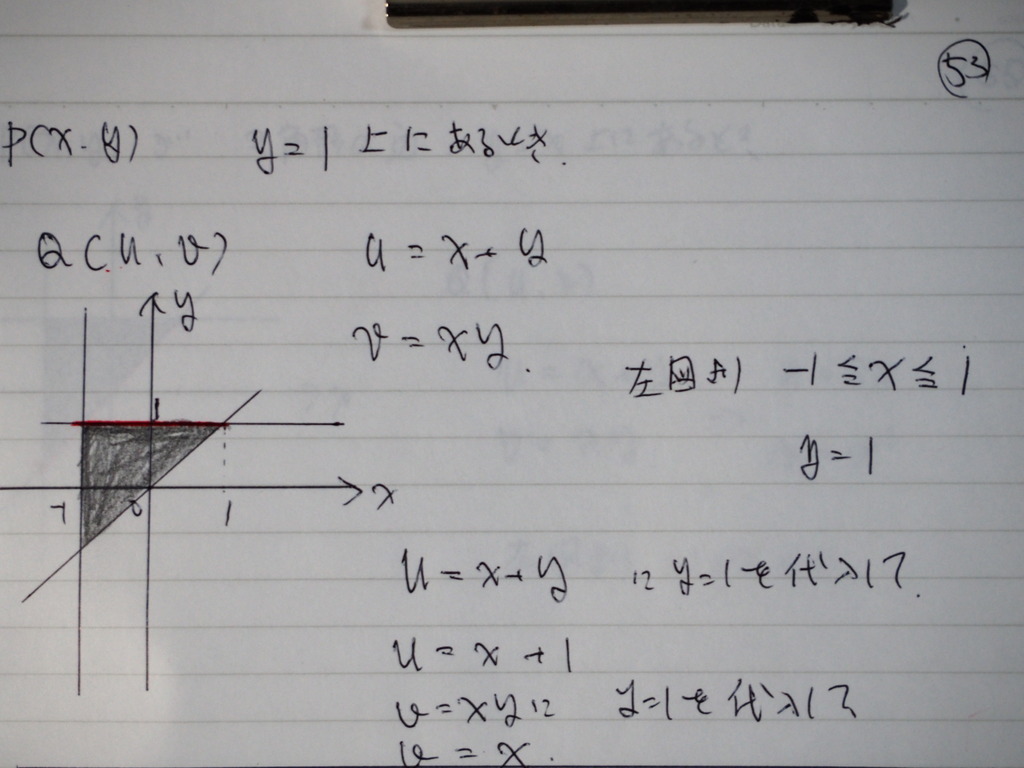 53
P(x.y) y=1 上にあるとき.
Q(u,v) u=x+y
v=xy.
左図より -1≦x≦1
y=1
y
1
x
-1 0 1
u=x+y に y=1を代入して.
u=x+1
v=xyに y=1を代入して
v=x.